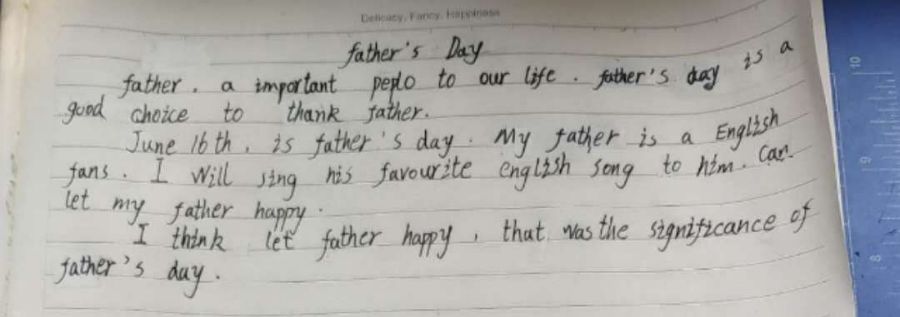 Delicacy, Fancy, Happiness
father's Day
father. a important peplo to our life. father's day is a
good choice to thank father.
June 16th, is father's day. My father is a English
fans. I will sing his favourite english song to him. Can
let my father happy.
I think let father happy, that was the significance of
father's day.
10
9
8